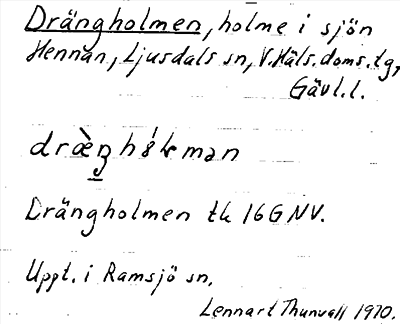 Drängholmen, holme i sjön
Hennan, Ljusdals sn, V.Häls.doms.tg,
Gävl.l.
Drängholmen tk 16G NV.
Uppt. i Ramsjö sn.
Lennart Thunvall 1970.